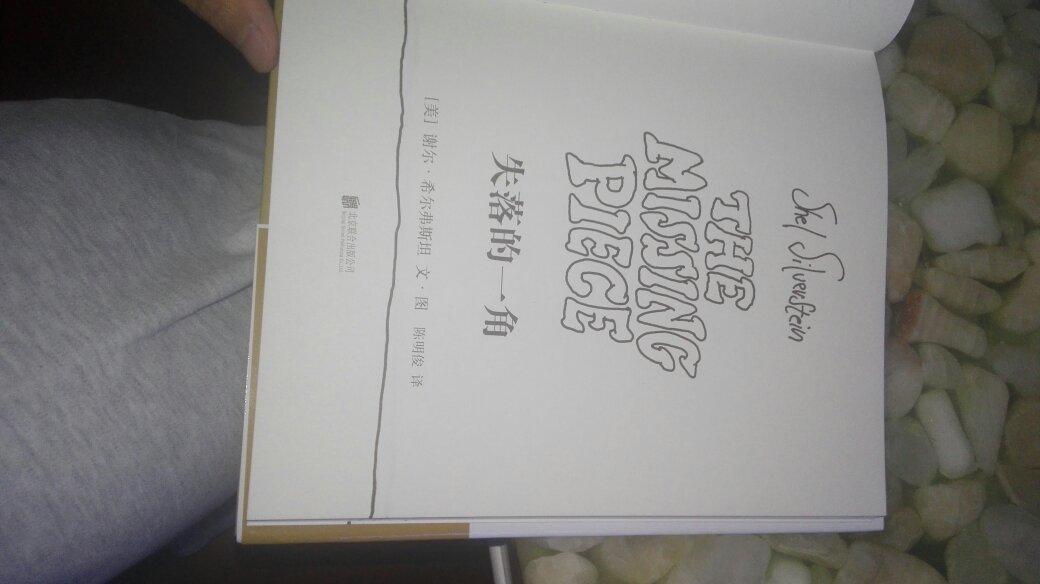 Shel Silverstein
THE
MISSING
PIECE
失落的一角
[美] 谢尔·希尔弗斯坦 文·图 陈明俊 译
北京联合出版公司